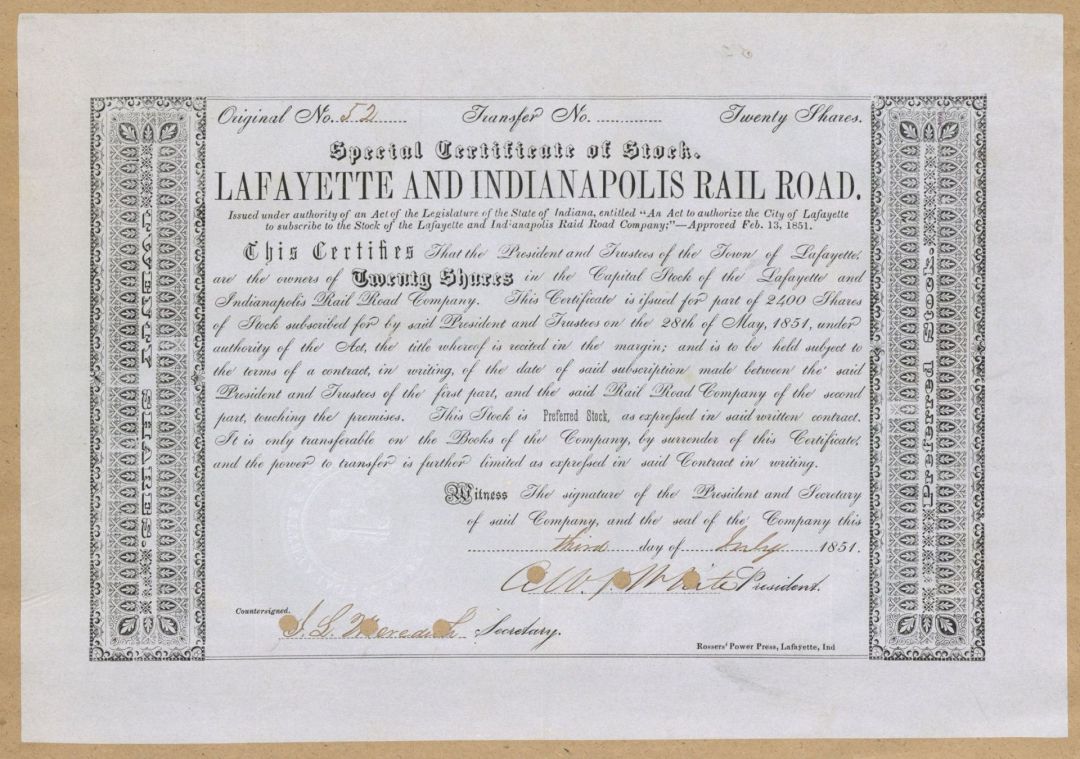 Original No. 52 Transfer No. Twenty Shares.
Special Certificate of Stock.
LAFAYETTE AND INDIANAPOLIS RAIL ROAD.
Issued under authority of an Act of the Legislature of the State of Indiana, entitled "An Act to authorize the City of Lafayette
to subscribe to the Stock of the Lafayette and Ind·anapolis Raid Road Company;"—Approved Feb. 13, 1851.
This Certifies That the President and Trustees of the Town of Lafayette,
are the owners of Twenty Shares in the Capital Stock of the Lafayette and
Indianapolis Rail Road Company. This Certificate is issued for part of 2400 Shares
of Stock subscribed for by said President and Trustees on the 28th of May, 1851, under
authority of the Act, the title whereof is recited in the margin; and is to be held subject to
the terms of a contract, in writing, of the date of said subscription made between the said
President and Trustees of the first part, and the said Rail Road Company of the second
part, touching the premises. This Stock is Preferred Stock, as expressed in said written contract.
It is only transferable on the Books of the Company, by surrender of this Certificate,
and the power to transfer is further limited as expressed in said Contract in writing.
Witness The signature of the President and Secretary
of said Company, and the seal of the Company this
third day of July 1851.
White President.
Countersigned.
Meredith Secretary.
Rossers' Power Press, Lafayette, Ind
TWENTY SHARES.
Preferred Stock.